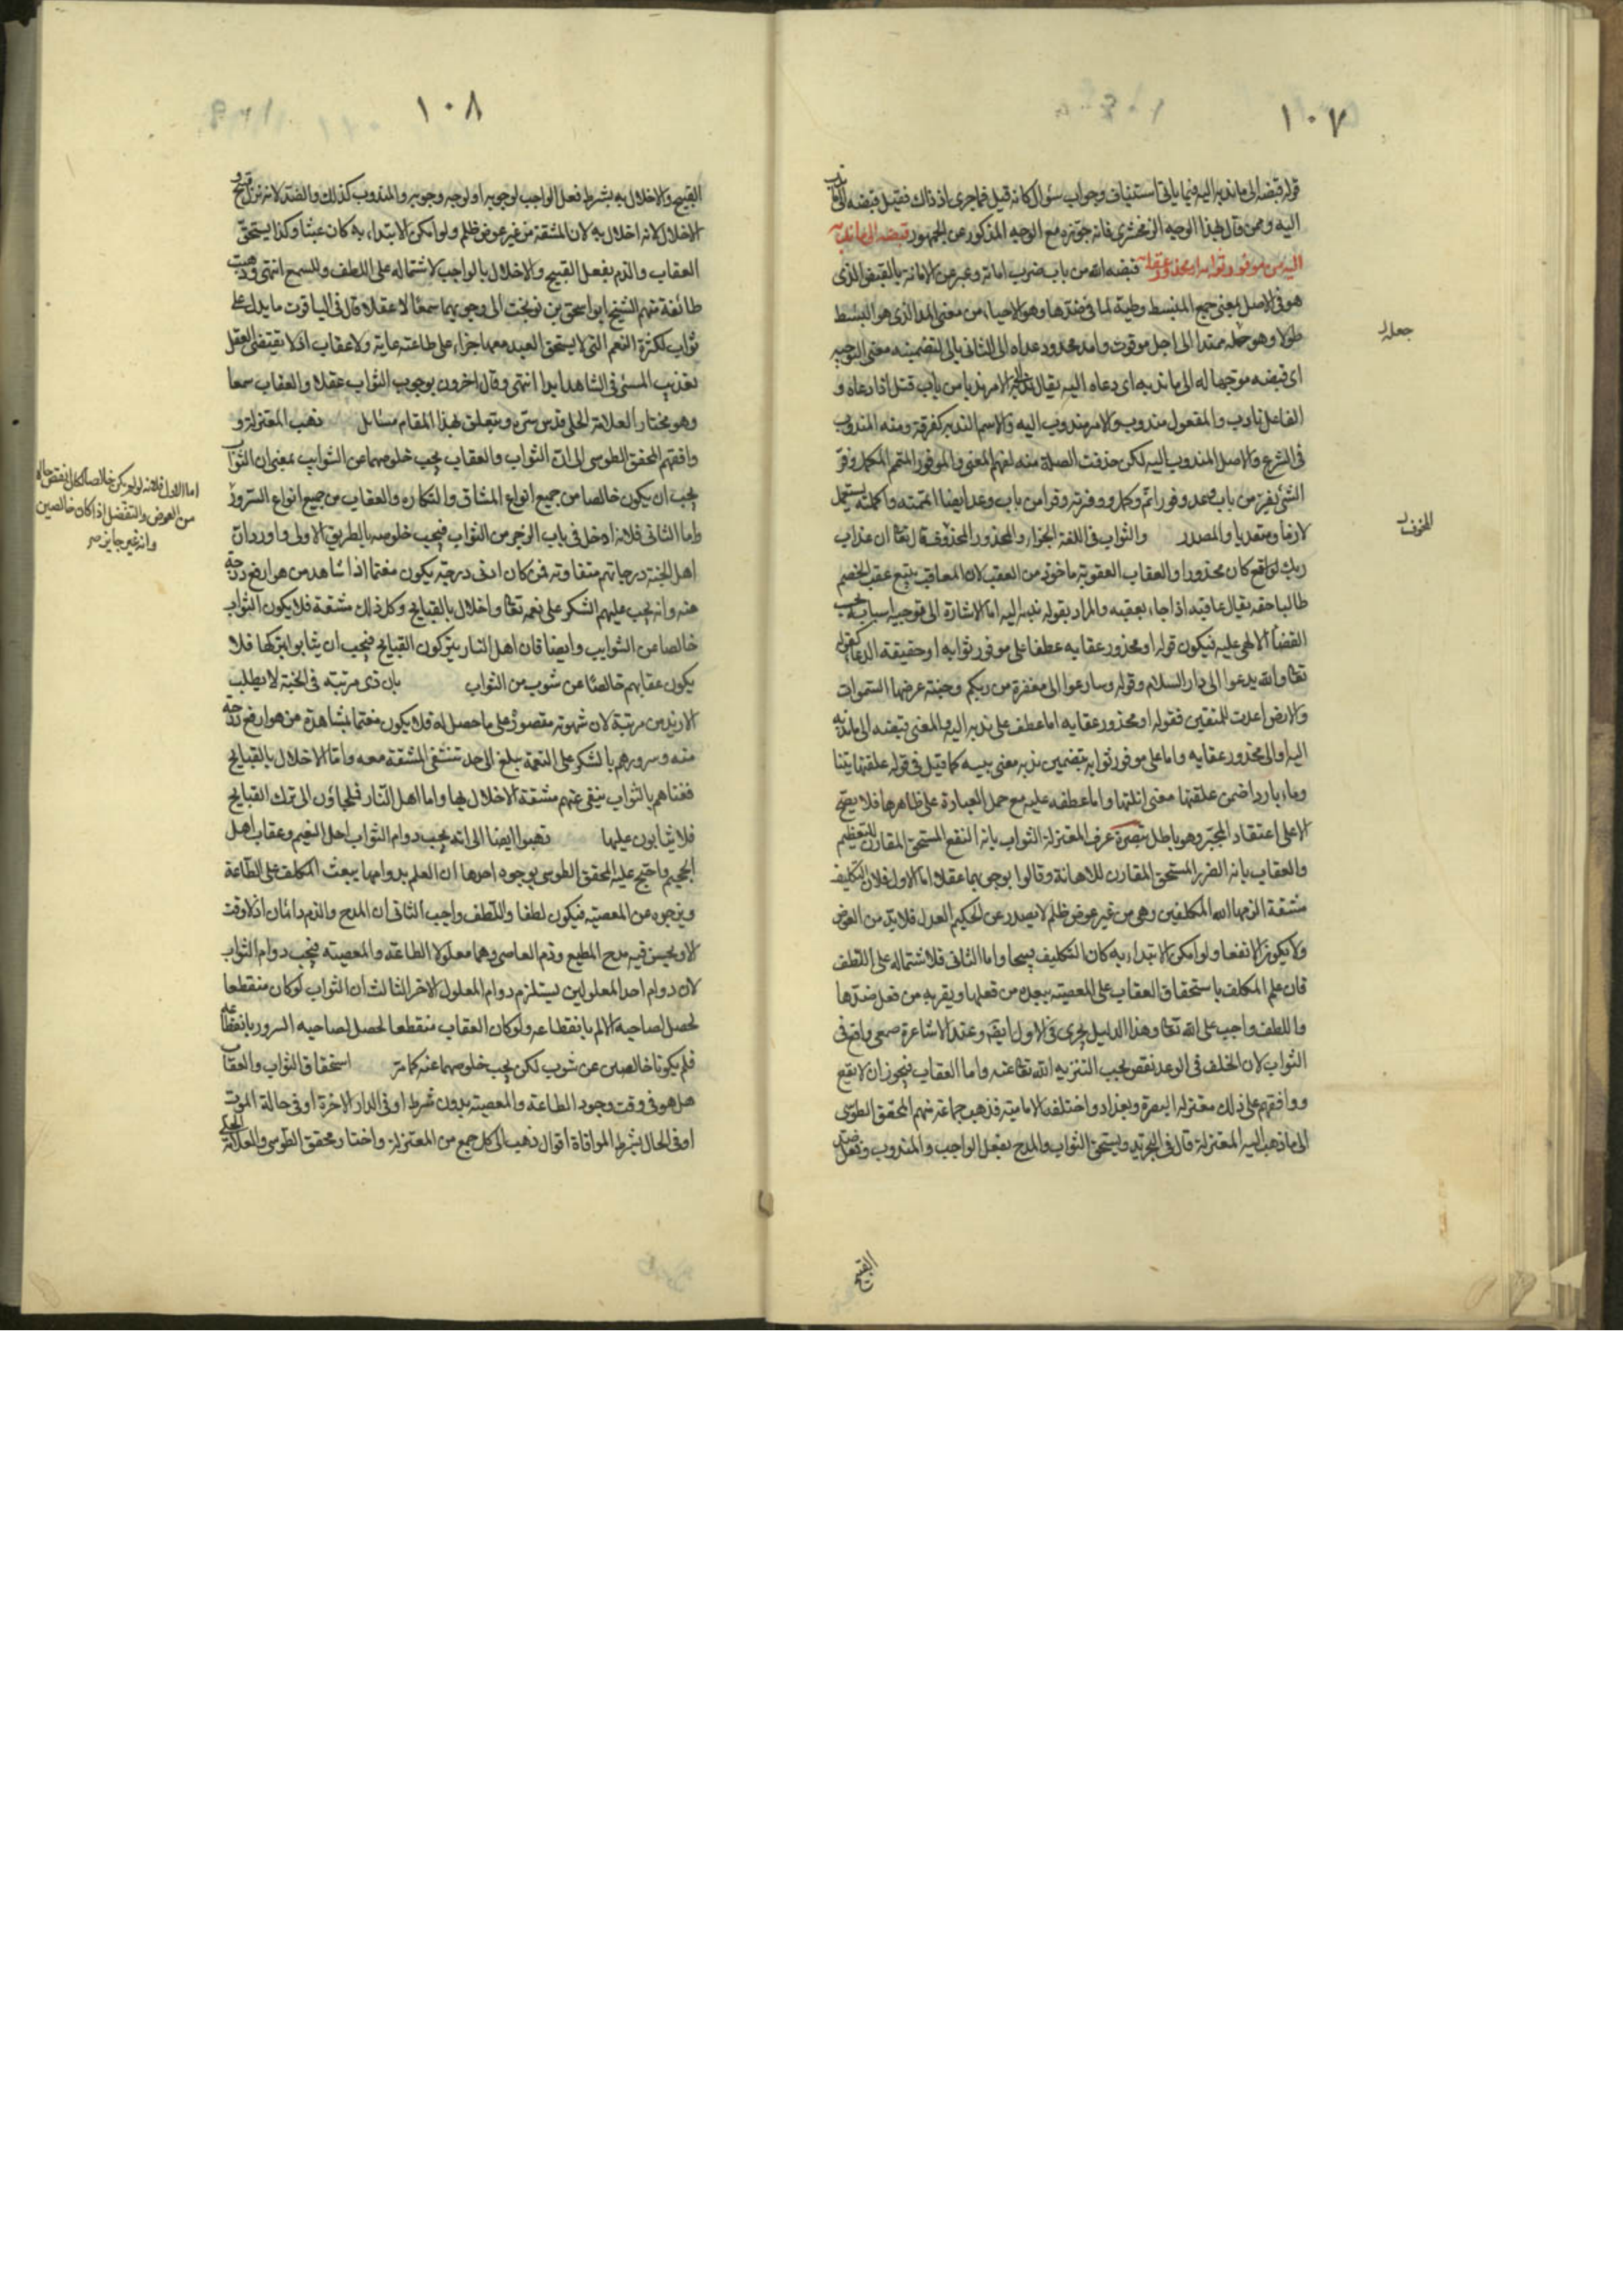 ١٠٧
قوله قبضه الى ما ندبه اليه فيما ياتى استيناف وجواب سؤال كانه قيل فما جرى اذ ذاك فقيل قبضه الى ما ندب
اليه وممن قال بهذا الوجه الزمخشرى فانه جوزه مع الوجه المذكور عن الجمهور قبضه الى ما ندبه
اليه من موفور ثوابه او محذور عقابه قبضه الله من باب ضرب اماته وعبر عن الاماتة بالقبض الذى
هو فى الاصل بمعنى جمع المنبسط وطيه لما فى ضدها وهو الاحياء من معنى المد الذى هو البسط
طولا وهو جعله ممتدا الى اجل موقوت وامد محدود عداه الى الثانى بالى لتضمينه معنى التوجيه
اى قبضه موجها له الى ما ندبه اى دعاه اليه يقال ندبه الى الامر ندبا من باب قتل اذا دعاه و
الفاعل نادب والمفعول مندوب والامر مندوب اليه والاسم الندبة كغرفة ومنه المندوب
فى الشرع والاصل المندوب اليه لكن حذفت الصلة منه لفهم المعنى والموفور المتمم المكمل وفر
الشئ يفر من باب وعد وفورا تم وكمل ووفرته وفرا من باب وعد ايضا اتممته واكملته يستعمل
لازما ومتعديا والمصدر والثواب فى اللغة الجزاء والمحذور المخوف قال تعالى ان عذاب
ربك لواقع كان محذورا والعقاب العقوبة ماخوذ من العقب لان المعاقب يتبع عقب الخصم
طالبا حقه يقال عاقبه اذا جاء بعقبه والمراد بقوله ندبه اليه اما الاشارة الى توجيه اسبابه بحسب
القضاء الالهى عليه فيكون قوله او محذور عقابه عطفا على موفور ثوابه او حقيقة الدعاء كقوله
تعالى والله يدعوا الى دار السلام وقوله وسارعوا الى مغفرة من ربكم وجنة عرضها السموات
والارض اعدت للمتقين فقوله او محذور عقابه اما عطف على ندبه اليه والمعنى قبضه الى ما ندبه
اليه او الى محذور عقابه واما على موفور ثوابه بتضمين ندبه معنى كما قيل فى قوله علفتها تبنا
وماء باردا ضمن علفتها معنى انلتها واما عطفه عليه مع حمل العبارة على ظاهرها فلا يصح
الا على اعتقاد المجبر وهو باطل تبصرة عرف المعتزلة الثواب بانه النفع المستحق المقارن للتعظيم
والعقاب بانه الضرر المستحق المقارن للاهانة وقالوا بوجوبهما عقلا اما الاول فلان التكليف
مشقة الزمها الله المكلفين وهى من غير عوض ظلم لا يصدر عن الحكيم العدل فلابد من العوض
ولا يكون الا نفعا ولو امكن الابتداء به كان التكليف قبيحا واما الثانى فلاشتماله على اللطف
فان علم المكلف باستحقاق العقاب على المعصية يبعده من فعلها ويقربه من فعل ضدها
واللطف واجب على الله تعالى وهذا الدليل يجرى فى الاول ايضا وعند الاشاعرة سمعى واقع فى
الثواب لان الخلف فى الوعد نقص يجب التنزيه الله تعالى عنه واما العقاب فيجوز ان لا يقع
ووافقهم على ذلك معتزلة البصرة وبغداد واختلف الامامية فذهب جماعة منهم المحقق الطوسى
الى ما ذهب اليه المعتزلة قال فى التجريد ويستحق الثواب والمدح بفعل الواجب والمندوب وفعل ضد
القبيح
جعله
المخوف
١٠٨
القبيح والاخلال به بشرط فعل الواجب لوجوبه او لوجه وجوبه والمندوب كذلك والضد لانه ترك قبيح و
الاخلال لانه اخلال به لان المشقة من غير عوض ظلم ولو امكن الابتداء به كان عبثا وكذا يستحق
العقاب والذم بفعل القبيح والاخلال بالواجب لاشتماله على اللطف وللسمع انتهى وذهبت
طائفة منهم الشيخ ابو اسحق بن نوبخت الى وجوبهما سمعا لا عقلا قال فى الياقوت ما يدل على
ثواب لكثرة النعم التى لا يستحق العبد معها جزاء على طاعته عاية ولا عقاب اذ لا يقتضى العقل
تعذيب المسئ فى الشاهد ابدا انتهى وقال اخرون بوجوب الثواب عقلا والعقاب سمعا
وهو مختار العلامة الحلى قدس سره ويتعلق بهذا المقام مسائل ذهب المعتزلة و
وافقهم المحقق الطوسى الى ان الثواب والعقاب يجب خلوصهما عن الشوايب بمعنى ان الثواب
يجب ان يكون خالصا من جميع انواع المشاق والمكاره والعقاب من جميع انواع السرور
واما الثانى فلانه ادخل فى باب الزجر من الثواب فيجب خلوصه بالطريق الاولى واورد ان
اهل الجنة درجاتهم متفاوتة فمن كان ادنى درجة يكون مغتما اذا شاهد من هو ارفع درجة
منه وانه يجب عليهم الشكر على نعمه تعالى واخلال بالقبايح وكل ذلك مشقة فلا يكون الثواب
خالصا عن الشوايب وايضا فان اهل النار يتركون القبايح فيجب ان يثابوا بتركها فلا
يكون عقابهم خالصا عن شوب من الثواب بان ذى مرتبة فى الجنة لا يطلب
الازيد من مرتبته لان شهوته مقصورة على ما حصل له فلا يكون مغتما بمشاهدة من هو ارفع درجة
منه وسرورهم بالشكر على النعمة يبلغ الى حد تنتفى المشقة معه واما الاخلال بالقبايح
فغناهم بالثواب ينفى عنهم مشقة الاخلال بها واما اهل النار فيلجاؤن الى ترك القبايح
فلا يثابون عليها ذهبوا ايضا الى انه يجب دوام الثواب اهل النعيم وعقاب اهل
الجحيم واحتج عليه المحقق الطوسى بوجوه احدها ان العلم بدوامها يبعث المكلف على الطاعة
ويزجره عن المعصية فيكون لطفا واللطف واجب الثانى ان المدح والذم دائمان اذ لا وقت
الا ويحسن فيه مدح المطيع وذم العاصى وهما معلولا الطاعة والمعصية فيجب دوام الثواب
لان دوام احد المعلولين يستلزم دوام المعلول الاخر الثالث ان الثواب لو كان منقطعا
لحصل لصاحبه الالم بانقطاعه ولو كان العقاب منقطعا لحصل لصاحبه السرور بانقطاعه
فلم يكونا خالصين عن شوب لكن يجب خلوصهما عنه كما مر استحقاق الثواب والعقاب
هل هو فى وقت وجود الطاعة والمعصية بدون شرط او فى الدار الاخرة او فى حالة الموت
او فى الحال بشرط الموافاة اقوال ذهب الى كل جمع من المعتزلة واختار محقق الطوسى والعلامة الحلى
اما الاول فلانه لو لم يكن خالصا لكان انقص حالا
من العوض والتفضل اذا كان خالصين
وانه غير جايز